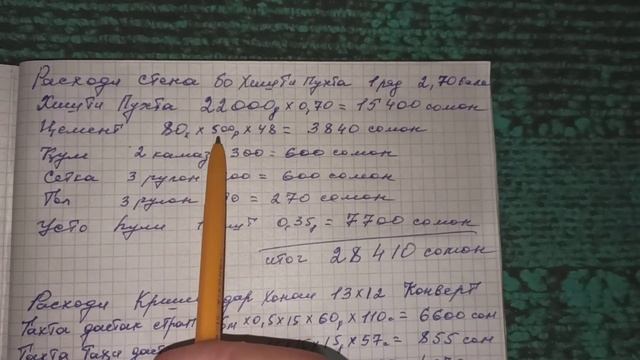 Расходи стена бо Хишти Пухта 1 ряд 2,70 бала
Хишти Пухта 22000д х 0,70 = 15400 сомон
Цемент 80 х 500д х 48 = 3840 сомон
Кум 2 камаз 300 = 600 сомон
Сетка 3 рулон 00 = 600 сомон
3 рулон 90 = 270 сомон
Усто Пули 1 0,35д = 7700 сомон
итог 28410 сомон
Расходи Криш дар Хонаи 13х12 Конверт
Тахта дастак строп 6м х 0,5 х 15 х 60д х 110 = 6600 сом
Тахта х 15 х 57 = 855 сом